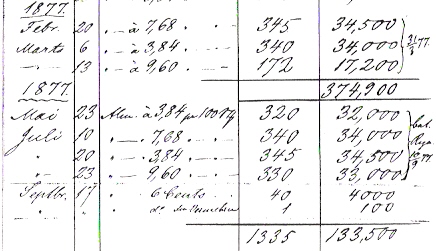 1877.
Febr. 20 " - à 7,68 " - " 345 34,500
Marts 6 " - à 3,84 " - " 340 34,000
" 13 " - à 9,60 " - " 172 17,200
374,900
1877.
Mai 23 à 3,84 pr 100 320 32,000
Juli 10 " - 7,68 " - 340 34,000
" 20 " - 3,84 " - 345 34,500
" 23 " - 9,60 " - 330 33,000
Septbr. 17 " 6 Cents " 40 4000
" " " do 1 100
1335 133,500